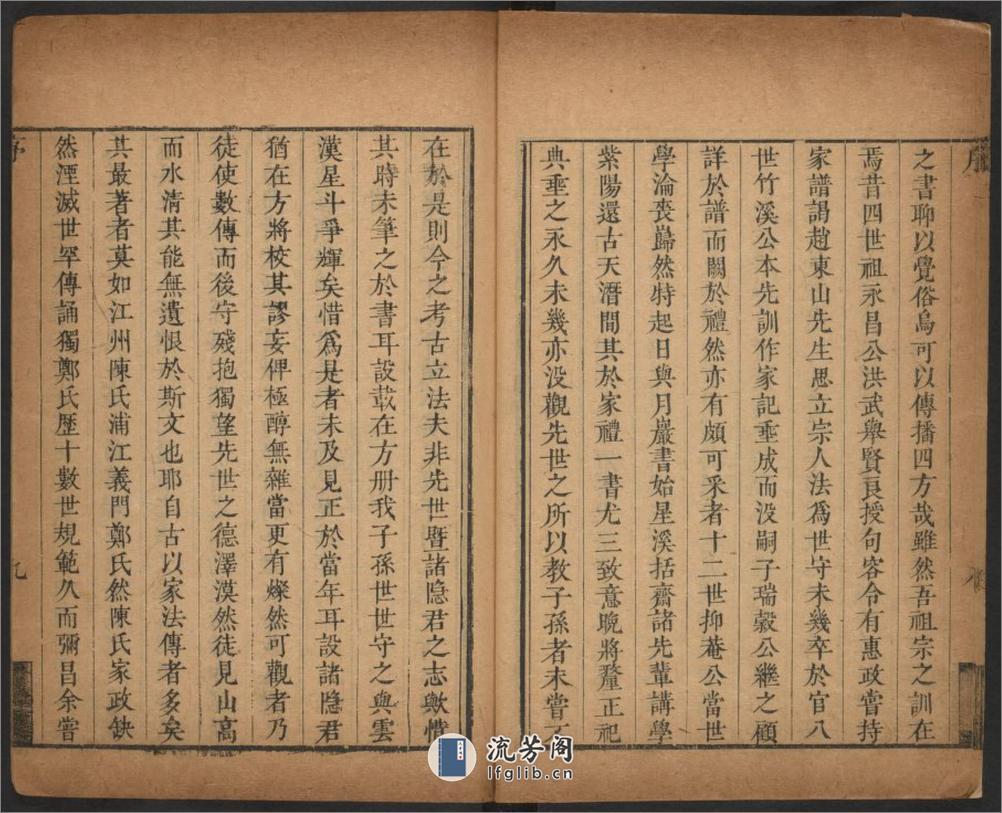 之書聊以覺俗烏可以傳播四方哉雖然吾祖宗之訓在
焉昔四世祖永昌公洪武舉賢良授句容令有惠政嘗持
家譜謁趙東山先生思立宗人法為世守未幾卒於官八
世竹溪公本先訓作家記垂成而没嗣子瑞穀公繼之顧
詳於譜而闕於禮然亦有頗可采者十二世抑菴公當世
學淪喪巋然特起日與月巖書始星溪括齋諸先輩講學
紫陽還古天潛間其於家禮一書尤三致意晚將釐正祀
典垂之永久未幾亦没觀先世之所以教子孫者未嘗不
在於是則今之考古立法夫非先世暨諸隐君之志歟惜
其時未筆之於書耳設載在方册我子孫世世守之與雲
漢星斗爭輝矣惜爲是者未及見正於當年耳設諸隐君
猶在方將校其謬妄俾極醇無雜當更有燦然可觀者乃
徒使數傳而後守殘抱獨望先世之德澤漠然徒見山高
而水清其能無遺恨於斯文也耶自古以家法傳者多矣
其最著者莫如江州陳氏浦江義門鄭氏然陳氏家政缺
然湮滅世罕傳誦獨鄭氏歷十數世規範久而彌昌余嘗
序
九
流芳阁
lfglib.cn